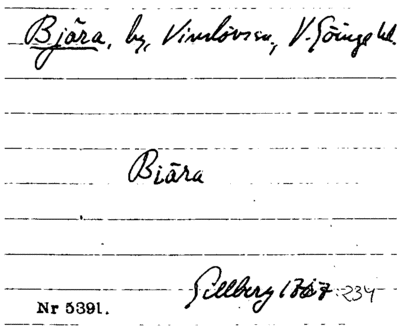 Bjära, by, Vinslövs sn, V. Göinge hd.
Biära
Gillberg 1767:234
Nr 5391.